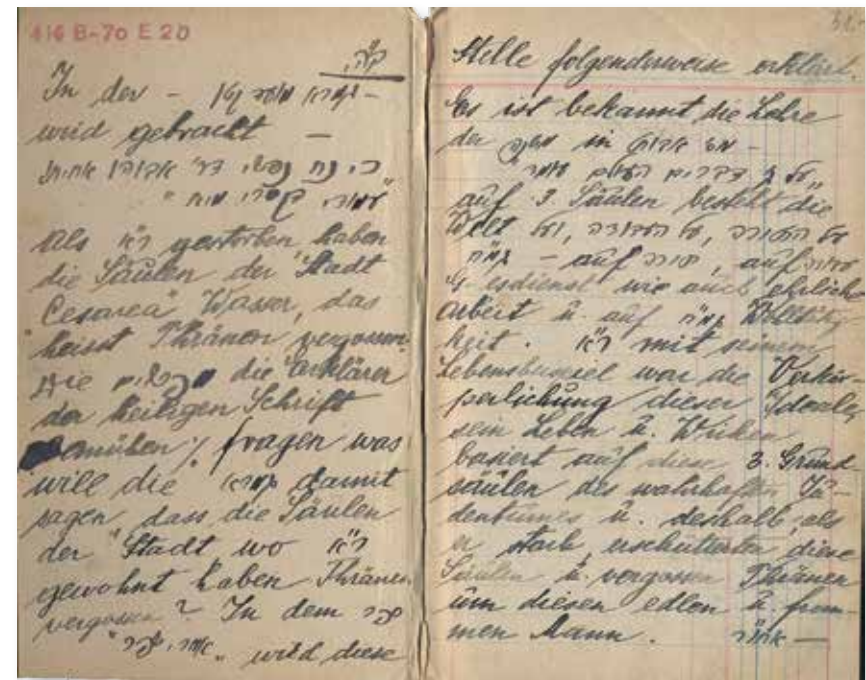 416 B-70 E 20
ק״ה.
In der - גמרא מועד קטן -
wird gebracht -
"כי נח נפשי׳ דר׳ אבוהו אחיתו
עמודי קסרי מיא "
Als ר״א gestorben haben
die Säulen der Stadt
"Cesarea" Wasser, das
heisst Thränen vergossen.
Die die Erklärer
der heiligen Schrift
bemühen / fragen was
will die גמרא damit
sagen dass die Säulen
der Stadt wo ר״א
gewohnt haben Thränen
vergossen? In dem ספר
" wird diese
Stelle folgenderweise erklärt.
Es ist bekannt die Lehre
der משנה in אבות -
"על ג׳ דברים העולם עומד"
auf 3 Säulen besteht die
Welt על התורה, על העבודה, ועל
גמ״ח - auf תורה, auf עבודה
G'esdienst wie auch ehrliche
Arbeit u. auf גמ״ח Wolltätig-
keit. ר״א mit seinem
Lebenswessel war die Verkör-
perlichung dieser Ideale,
sein Leben u. Wirken
basiert auf diese 3. Grund
säulen des wahrhaften Ju-
dentumes u. deshalb, als
er starb, erschütterten diese
Säulen u. vergossen Thränen
um diesen edlen u. from-
men Mann. -